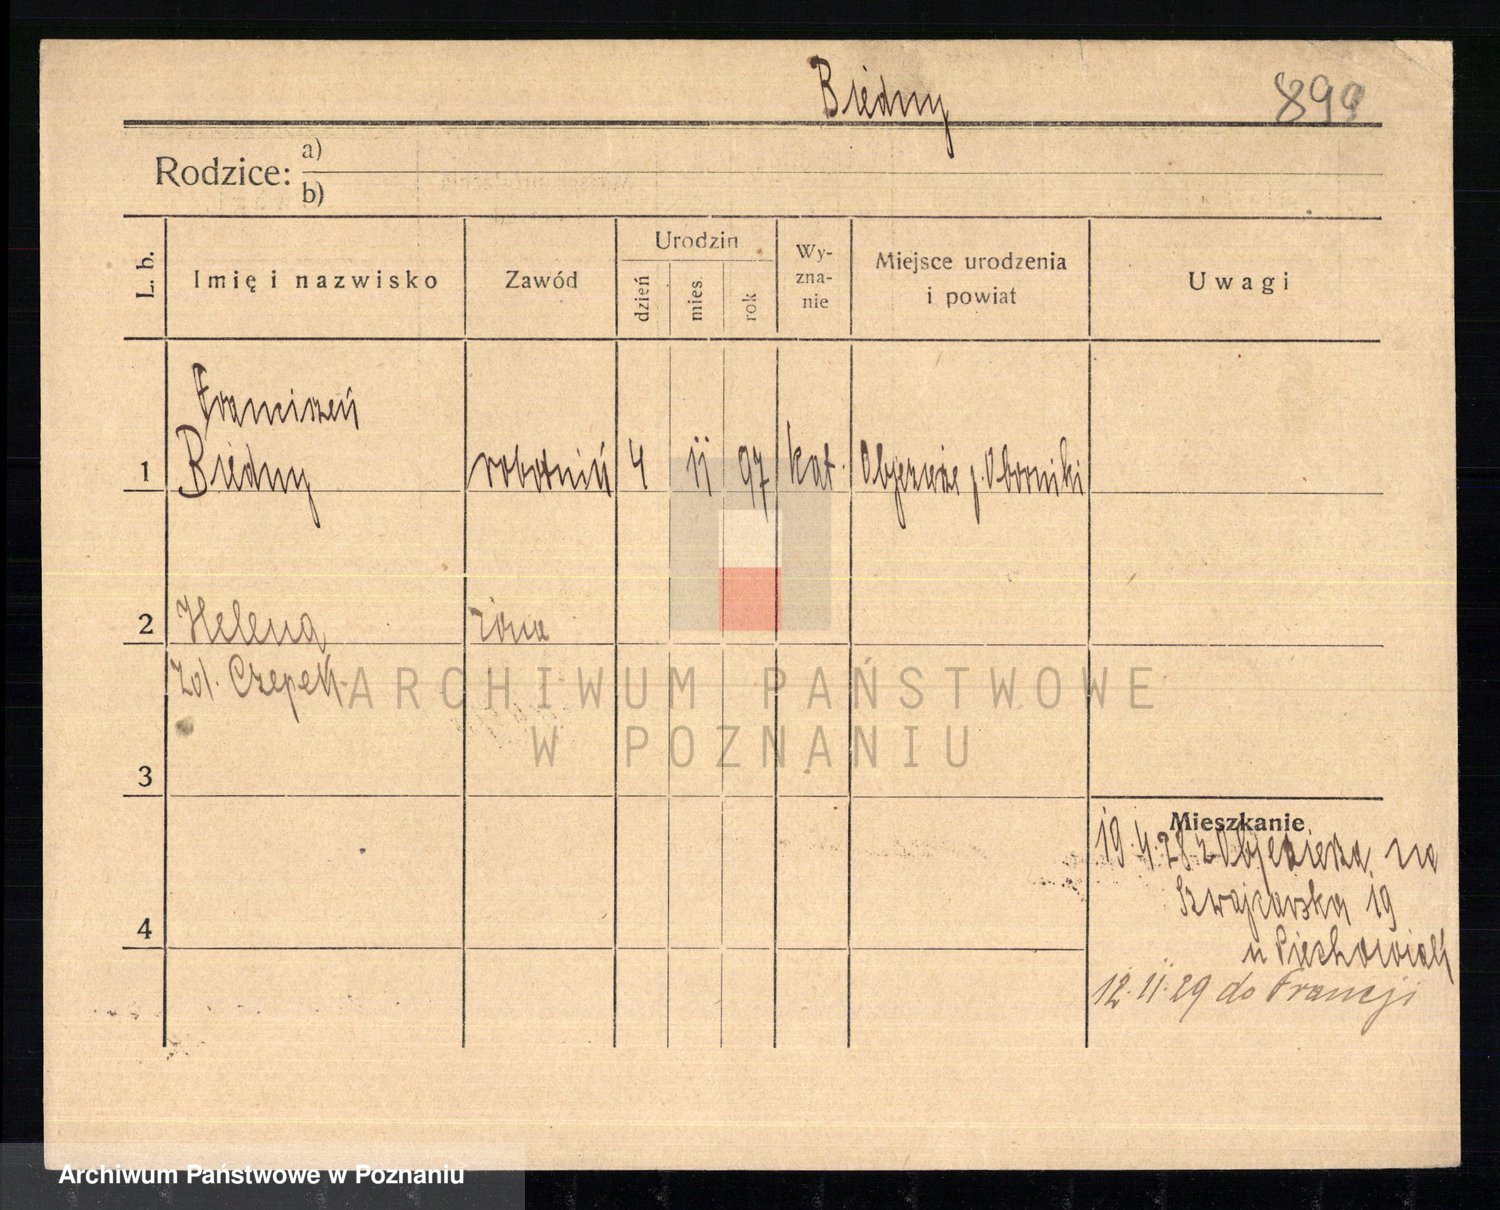 Biedny 899
Rodzice: a)
b)
L. b.
Imię i nazwisko
Zawód
Urodzin
dzień
mies.
rok
Wy-
zna-
nie
Miejsce urodzenia
i powiat
Uwagi
Franciszek
1 Biedny robotnik 4 11 97 kat. Objezierze p. Oborniki
2 Helena żona
zd. Czepek
3
4
Mieszkanie
19.4.28 z Objezierza na
Szwajcarska 19
u Piechowiak
12.11.29 do Francji
ARCHIWUM PAŃSTWOWE
W POZNANIU
Archiwum Państwowe w Poznaniu